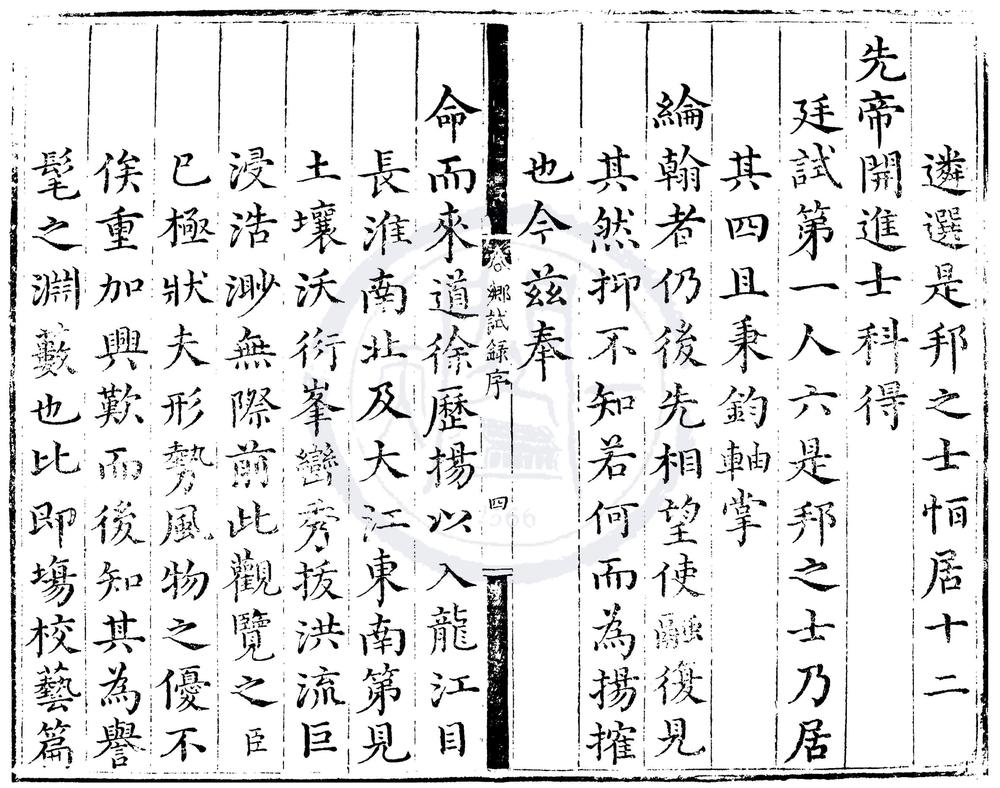 遴選是邦之士恒居十二
先帝開進士科得
廷試第一人六是邦之士乃居
其四且秉鈞軸掌
綸翰者仍後先相望使融復見
其然抑不知若何而為揚搉
也今茲奉
卷 鄉試錄序 四
命而來道徐歷揚以入龍江目
長淮南北及大江東南第見
土壤沃衍峯巒秀拔洪流巨
浸浩渺無際前此觀覽之臣
已極狀夫形勢風物之優不
俟重加興歎而後知其為譽
髦之淵藪也比即場校藝篇